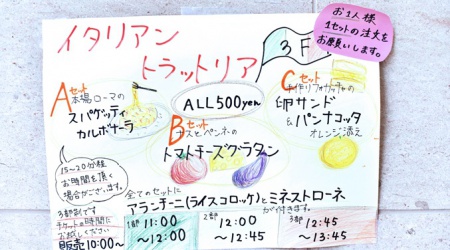 イタリアン
トラットリア
3F
お1人様
1セットの注文を
お願いします。
Aセット
本場ローマの
スパゲッティ
カルボナーラ
ALL500yen
Bセット
ナスとペンネの
トマトチーズグラタン
Cセット
手作りフォカッチャの
卵サンド
&パンナコッタ
オレンジ添え
15〜20分程
お時間を頂く
場合がございます。
全てのセットに
アランチーニ(ライスコロッケ)とミネストローネ
が付きます。
3部制です
チケットの時間に
お越しください
販売10:00〜
1部 11:00
〜12:00
2部 12:00
〜12:45
3部 12:45
〜13:45